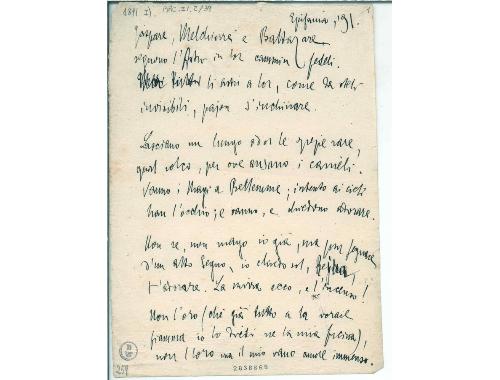 1891 I)
Epifania, '91.
1
Gaspare, Melchiorre e Baltasare
seguono l'Astro in lor cammin fedeli.
li astri a lor, come da
invisibili, pajon s'inchinare.
Lasciano un lungo odor le spezie rare,
qual solco, per ove ansano i cameli.
Vanno i Magi a Betlemme; intento ai cieli
han l'occhio; e vanno, e chiedono adorare.
Non re, non mago io già, ma pur seguace
d'un alto Segno, io chiedo sol,
t'adorare. La mirra ecco, e l'incenso!
Non l'oro (ché già tutto a la vorace
fiamma io lo diedi ne la mia fucina),
non l'oro ma il mio vano amore immenso.
259
2038860